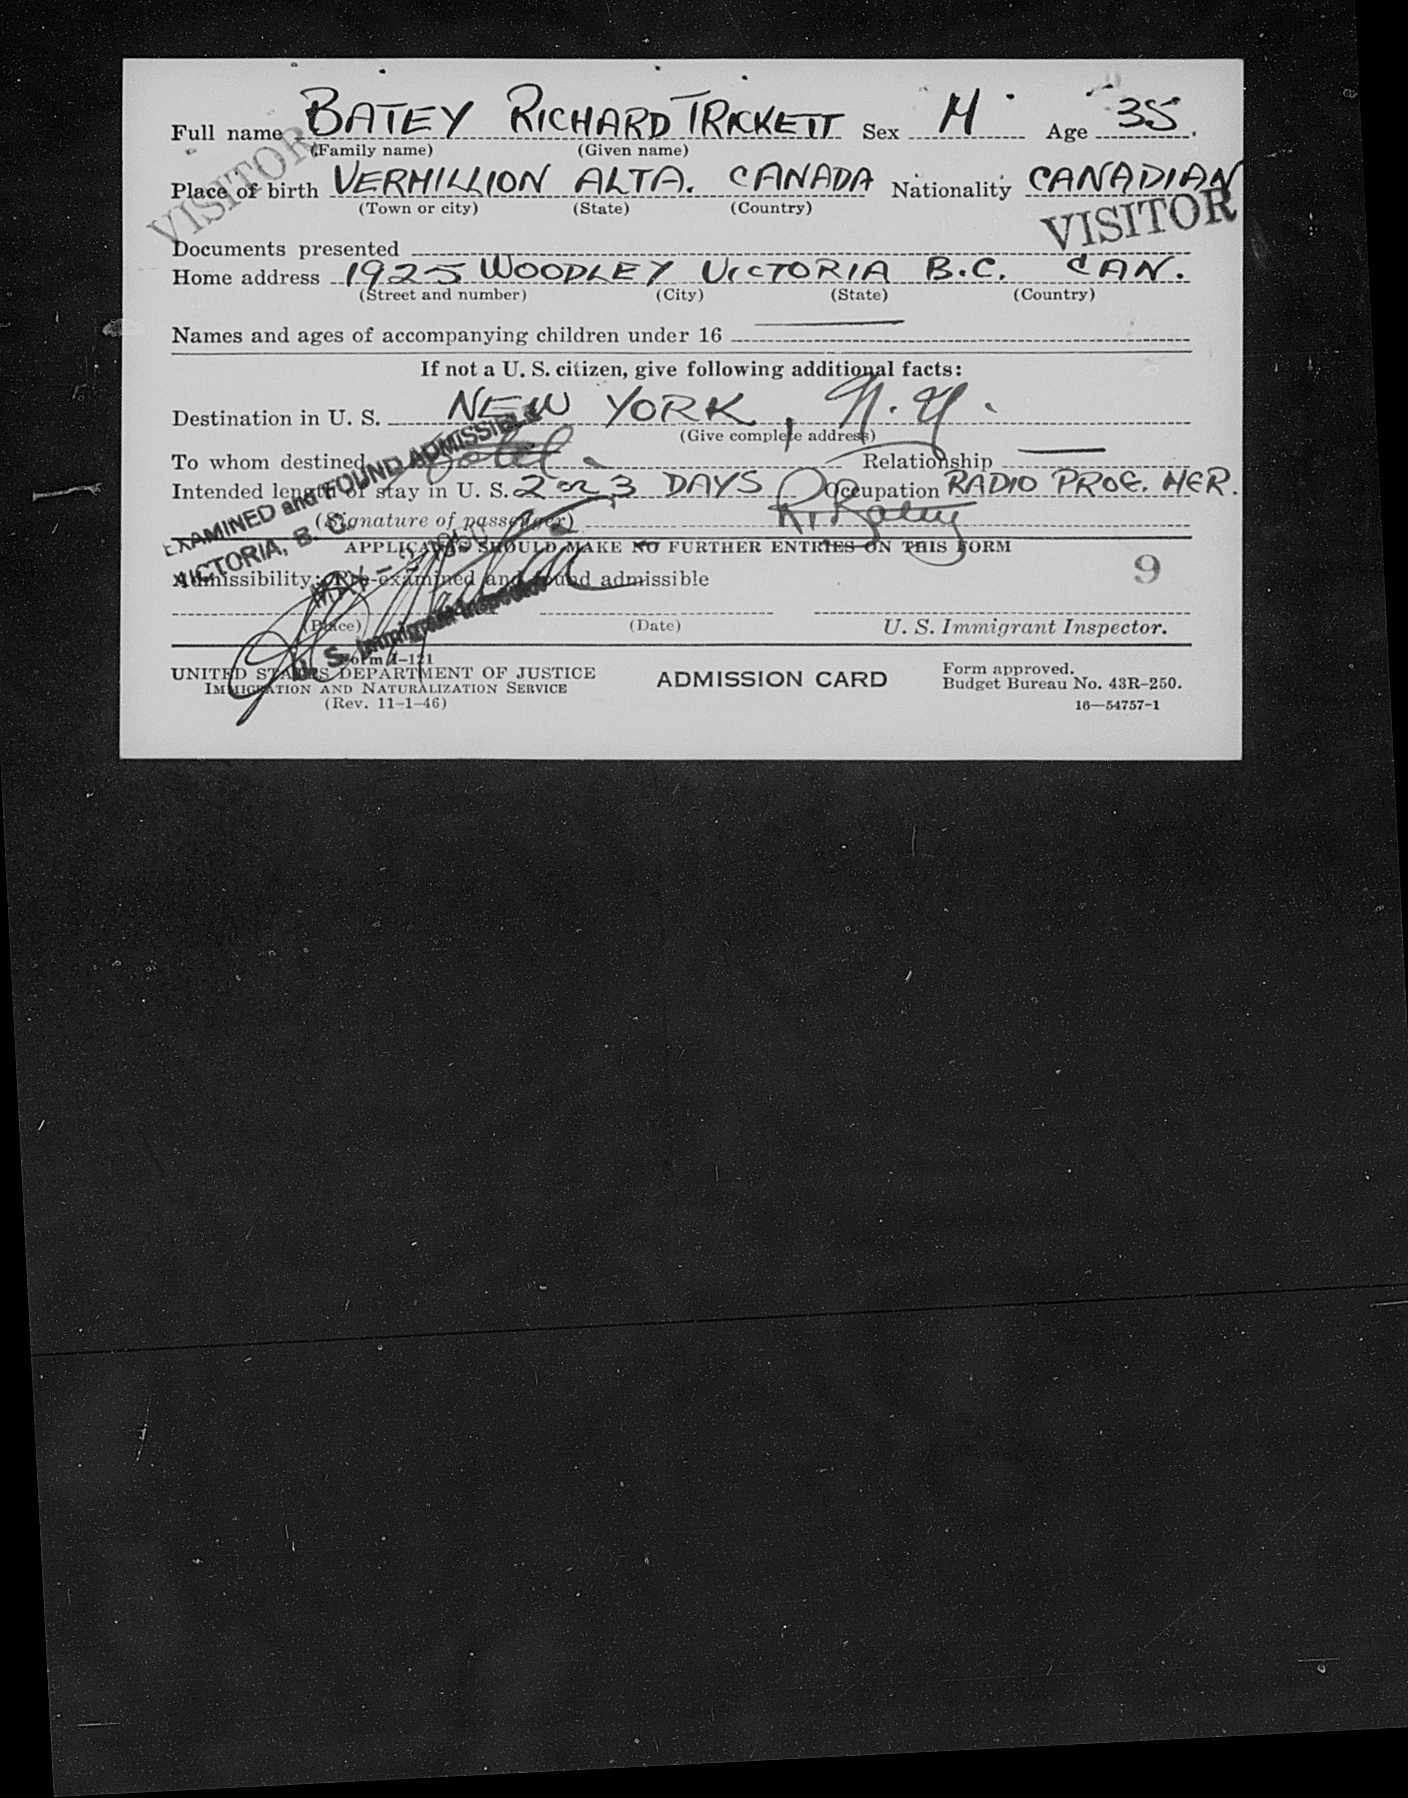 Full name BATEY RICHARD TRICKETT Sex M Age 35.
(Family name) (Given name)
VISITOR
Place of birth VERMILLION ALTA. CANADA Nationality CANADIAN
(Town or city) (State) (Country)
VISITOR
Documents presented
Home address 1925 WOODLEY VICTORIA B.C. CAN.
(Street and number) (City) (State) (Country)
Names and ages of accompanying children under 16
If not a U. S. citizen, give following additional facts:
Destination in U. S. NEW YORK, N.Y.
(Give complete address)
To whom destined Hotel Relationship
Intended length of stay in U. S. 2 or 3 DAYS Occupation RADIO PROG. MGR.
(Signature of passenger) R.T. Batey
EXAMINED and FOUND ADMISSIBLE
VICTORIA, B. C.
APPLICANTS SHOULD MAKE NO FURTHER ENTRIES ON THIS FORM
Admissibility: Pre-examined and found admissible
9
(Place) (Date) U. S. Immigrant Inspector.
U. S. Immigrant Inspector
Form I-121
UNITED STATES DEPARTMENT OF JUSTICE
IMMIGRATION AND NATURALIZATION SERVICE
(Rev. 11-1-46)
ADMISSION CARD
Form approved.
Budget Bureau No. 43R-250.
16—54757-1